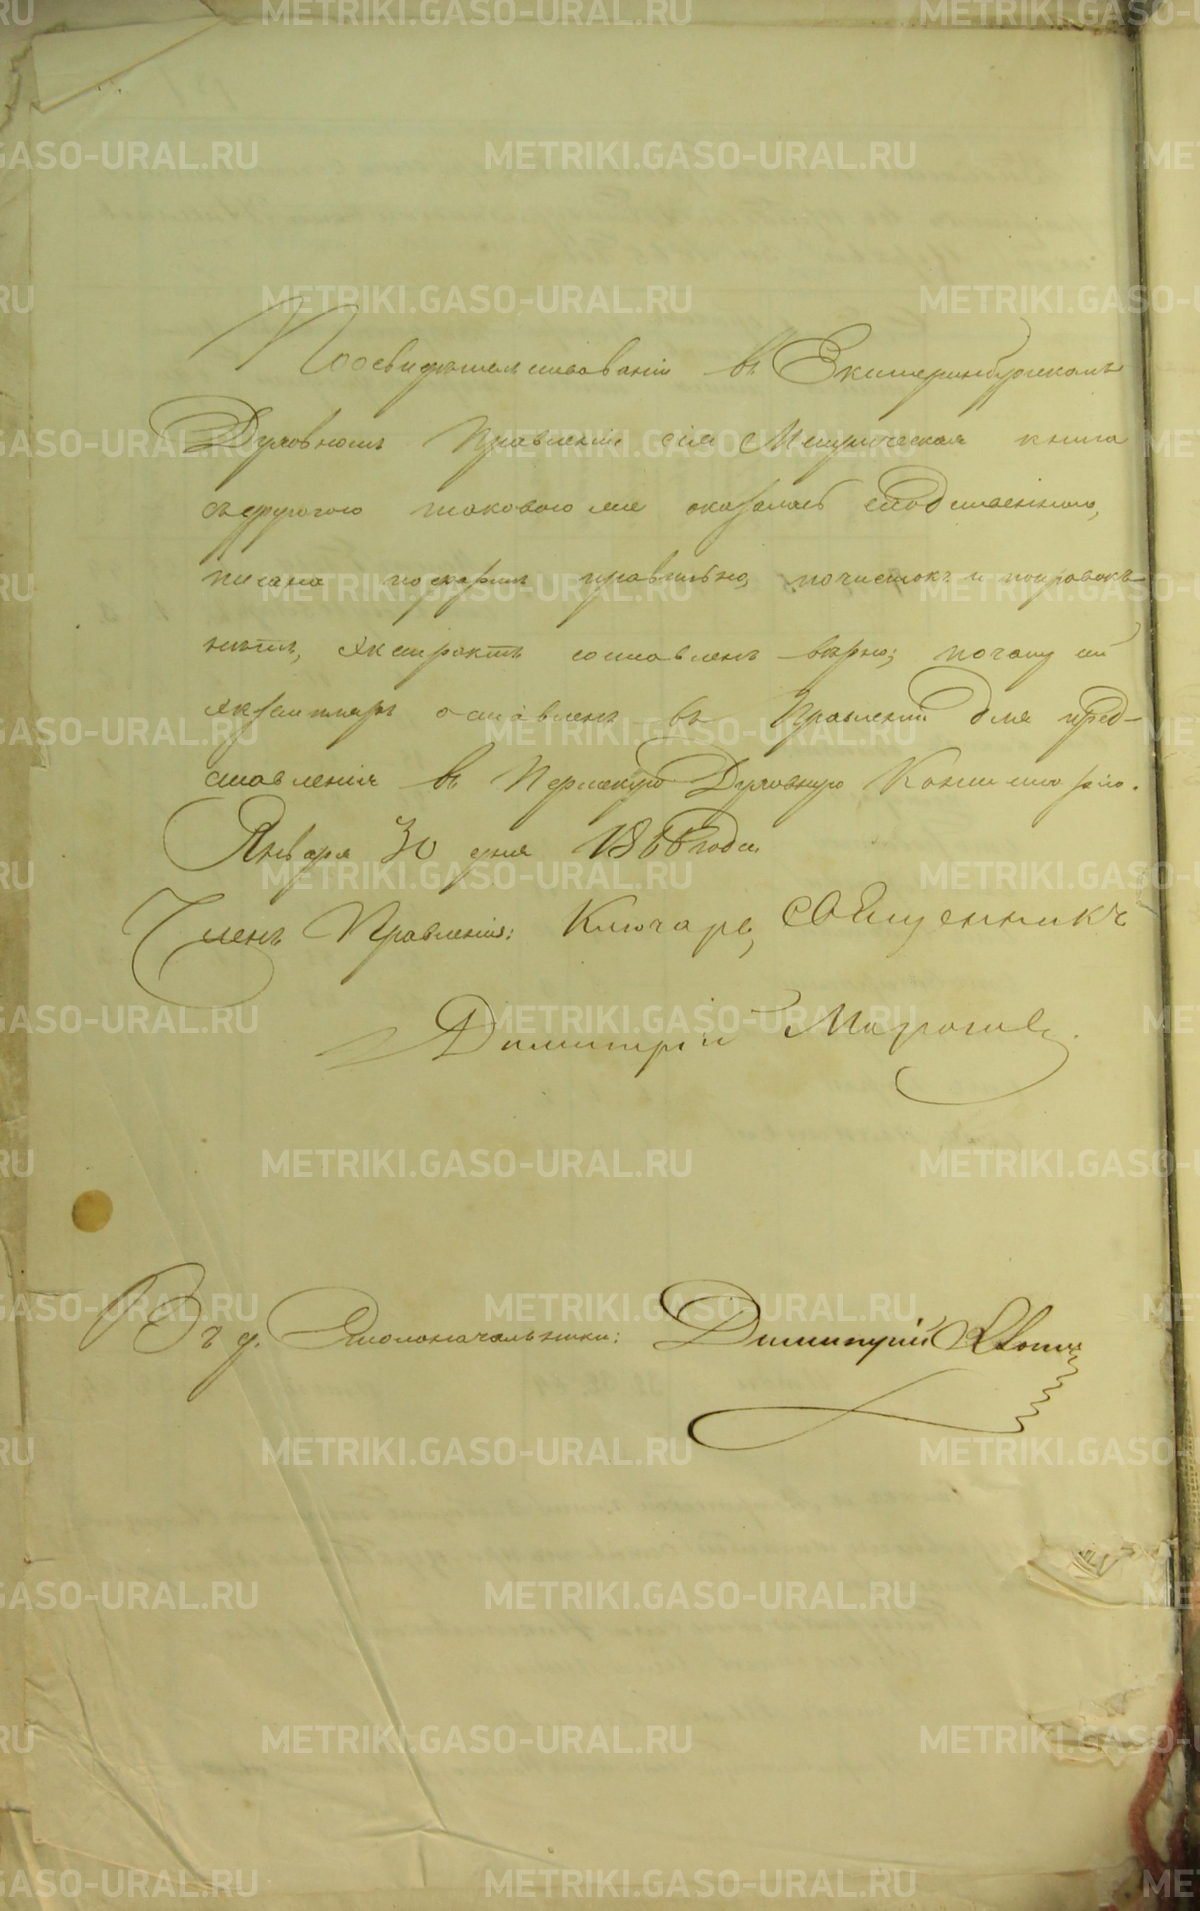 По освидѣтельствованіи въ Екатеринбургскомъ
Духовномъ Правленіи сія Метрическая книга
съ другою таковою же оказалась сходственною,
писана по формѣ правильно, почистокъ и поправокъ
нѣтъ, экстрактъ составленъ вѣрно; почему сей
экземпляръ оставленъ въ Правленіи для пред-
ставленія въ Пермскую Духовную Консисторію.
Января 30 дня 1866 года
Членъ Правленія: Ключарь, Священникъ
Димитрій
Въ д. Столоначальника: Димитрій
METRIKI.GASO-URAL.RU